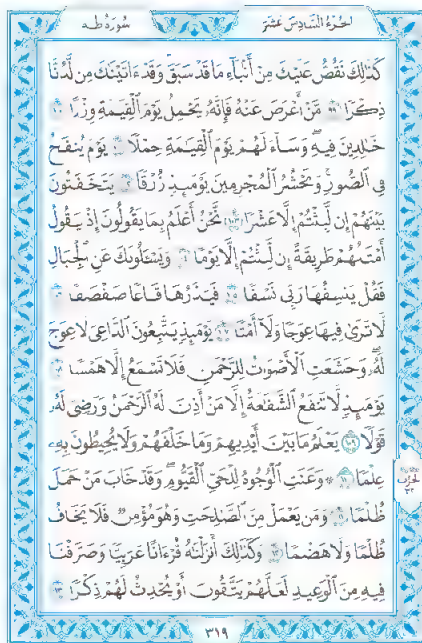 الجزء السادس عشر
سورة طه
كَذَٰلِكَ نَقُصُّ عَلَيْكَ مِنْ أَنۢبَآءِ مَا قَدْ سَبَقَ وَقَدْ ءَاتَيْنَٰكَ مِن لَّدُنَّا
ذِكْرًا ٩٩ مَّنْ أَعْرَضَ عَنْهُ فَإِنَّهُۥ يَحْمِلُ يَوْمَ ٱلْقِيَٰمَةِ وِزْرًا ١٠٠
خَٰلِدِينَ فِيهِ وَسَآءَ لَهُمْ يَوْمَ ٱلْقِيَٰمَةِ حِمْلًا ١٠١ يَوْمَ يُنفَخُ
فِى ٱلصُّورِ وَنَحْشُرُ ٱلْمُجْرِمِينَ يَوْمَئِذٍ زُرْقًا ١٠٢ يَتَخَٰفَتُونَ
بَيْنَهُمْ إِن لَّبِثْتُمْ إِلَّا عَشْرًا ١٠٣ نَّحْنُ أَعْلَمُ بِمَا يَقُولُونَ إِذْ يَقُولُ
أَمْثَلُهُمْ طَرِيقَةً إِن لَّبِثْتُمْ إِلَّا يَوْمًا ١٠٤ وَيَسْـَٔلُونَكَ عَنِ ٱلْجِبَالِ
فَقُلْ يَنسِفُهَا رَبِّى نَسْفًا ١٠٥ فَيَذَرُهَا قَاعًا صَفْصَفًا ١٠٦
لَّا تَرَىٰ فِيهَا عِوَجًا وَلَآ أَمْتًا ١٠٧ يَوْمَئِذٍ يَتَّبِعُونَ ٱلدَّاعِىَ لَا عِوَجَ
لَهُۥ وَخَشَعَتِ ٱلْأَصْوَاتُ لِلرَّحْمَٰنِ فَلَا تَسْمَعُ إِلَّا هَمْسًا ١٠٨
يَوْمَئِذٍ لَّا تَنفَعُ ٱلشَّفَٰعَةُ إِلَّا مَنْ أَذِنَ لَهُ ٱلرَّحْمَٰنُ وَرَضِىَ لَهُۥ
قَوْلًا ١٠٩ يَعْلَمُ مَا بَيْنَ أَيْدِيهِمْ وَمَا خَلْفَهُمْ وَلَا يُحِيطُونَ بِهِۦ
عِلْمًا ١١٠ ۞ وَعَنَتِ ٱلْوُجُوهُ لِلْحَىِّ ٱلْقَيُّومِ وَقَدْ خَابَ مَنْ حَمَلَ
ظُلْمًا ١١١ وَمَن يَعْمَلْ مِنَ ٱلصَّٰلِحَٰتِ وَهُوَ مُؤْمِنٌ فَلَا يَخَافُ
ظُلْمًا وَلَا هَضْمًا ١١٢ وَكَذَٰلِكَ أَنزَلْنَٰهُ قُرْءَانًا عَرَبِيًّا وَصَرَّفْنَا
فِيهِ مِنَ ٱلْوَعِيدِ لَعَلَّهُمْ يَتَّقُونَ أَوْ يُحْدِثُ لَهُمْ ذِكْرًا ١١٣
الحزب
٣٢
٣١٩